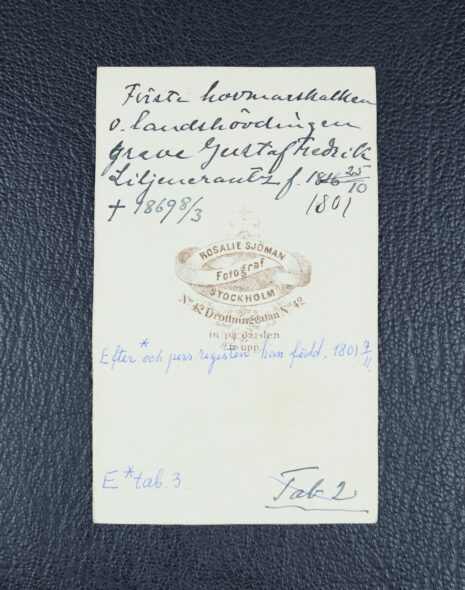 Förste hovmarskalken
o. landshövdingen
greve Gustaf Fredrik
Liljencrantz f. 25/10
+ 1869 8/3 1801
ROSALIE SJÖMAN
Fotograf
STOCKHOLM
No 42 Drottninggatan No 42
in på gården
upp
Efter * och pers registen han född. 1801
E * tab. 3.
Tab 2